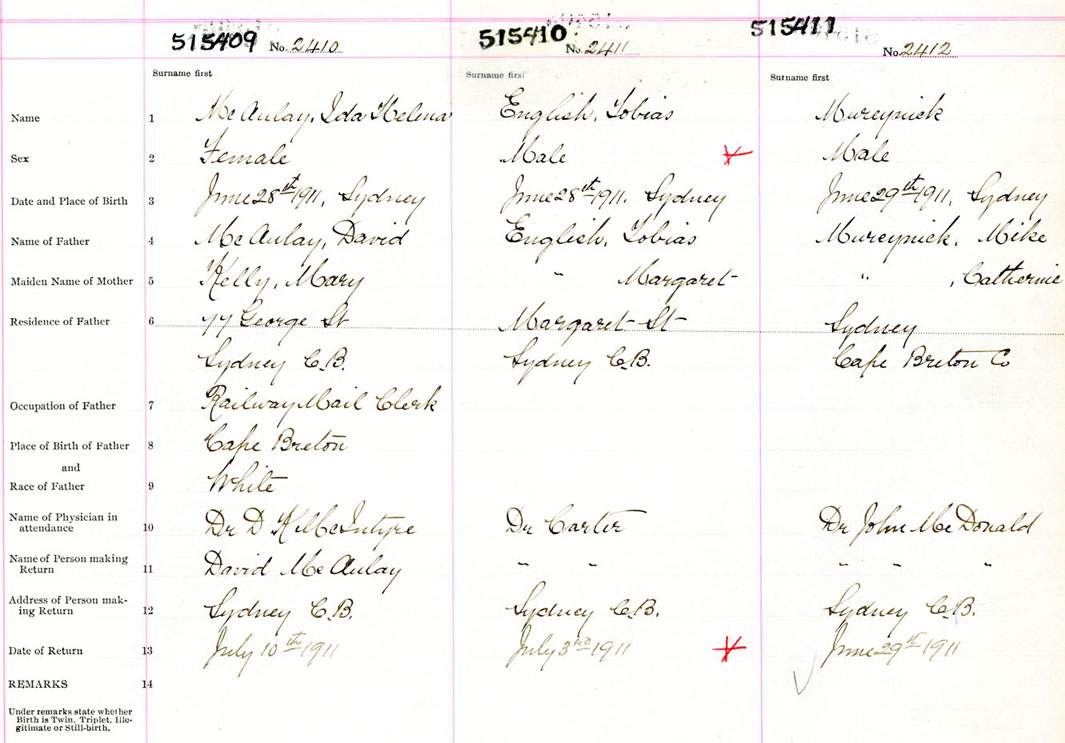 515409 No. 2410 515410 No. 2411 515411 No. 2412
Surname first Surname first Surname first
Name 1 McAulay, Ida Helena English, Tobias Mureynick
Sex 2 Female Male Male
Date and Place of Birth 3 June 28th 1911, Sydney June 28th 1911. Sydney June 29th 1911, Sydney
Name of Father 4 McAulay, David English, Tobias Mureynick, Mike
Maiden Name of Mother 5 Kelly, Mary " Margaret " , Catherine
Residence of Father 6 77 George St Margaret St Sydney
Sydney C.B. Sydney C.B. Cape Breton Co
Occupation of Father 7 Railway Mail Clerk
Place of Birth of Father 8 Cape Breton
and
Race of Father 9 White
Name of Physician in
attendance 10 Dr D K McIntyre Dr Carter Dr John McDonald
Name of Person making
Return 11 David McAulay " " " " "
Address of Person mak-
ing Return 12 Sydney C.B. Sydney C.B. Sydney C.B.
Date of Return 13 July 10th 1911 July 3rd 1911 June 29th 1911
REMARKS 14
Under remarks state whether
Birth is Twin, Triplet, Ille-
gitimate or Still-birth.